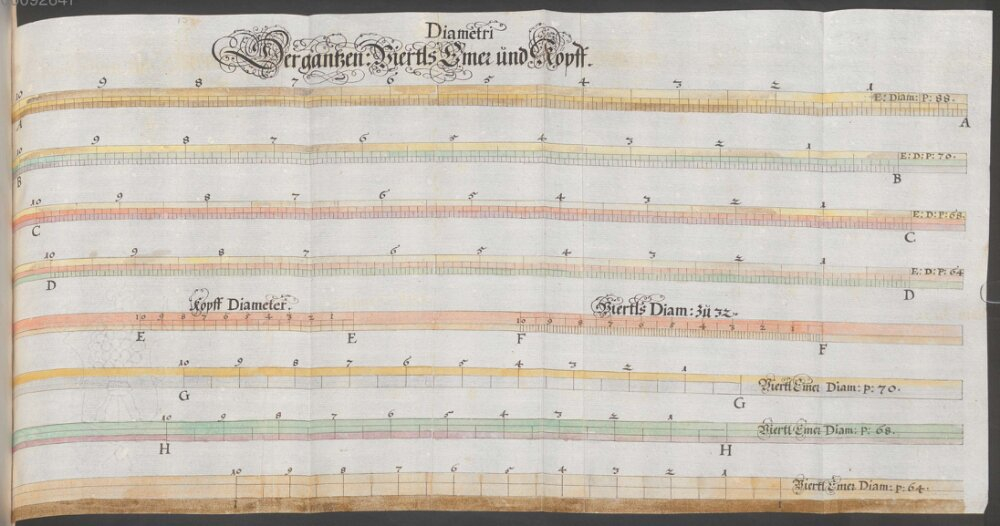 Diametri
Der gantzen: Viertls Emer und Kopff.
10 9 8 7 6 5 4 3 2 1
E: Diam: P: 88.
A A
10 9 8 7 6 5 4 3 2 1
E: D: P: 70.
B B
10 9 8 7 6 5 4 3 2 1
E: D: P: 68.
C C
10 9 8 7 6 5 4 3 2 1
E: D: P: 64
D D
Kopff Diameter. Viertls Diam: Zů 32.
10 9 8 7 6 5 4 3 2 1 10 9 8 7 6 5 4 3 2 1
E E F F
10 9 8 7 6 5 4 3 2 1
Viertl Emer Diam: p: 70.
G G
10 9 8 7 6 5 4 3 2 1
Viertl Emer Diam: P: 68.
H H
10 9 8 7 6 5 4 3 2 1
Viertl Emer Diam: p: 64.
I I